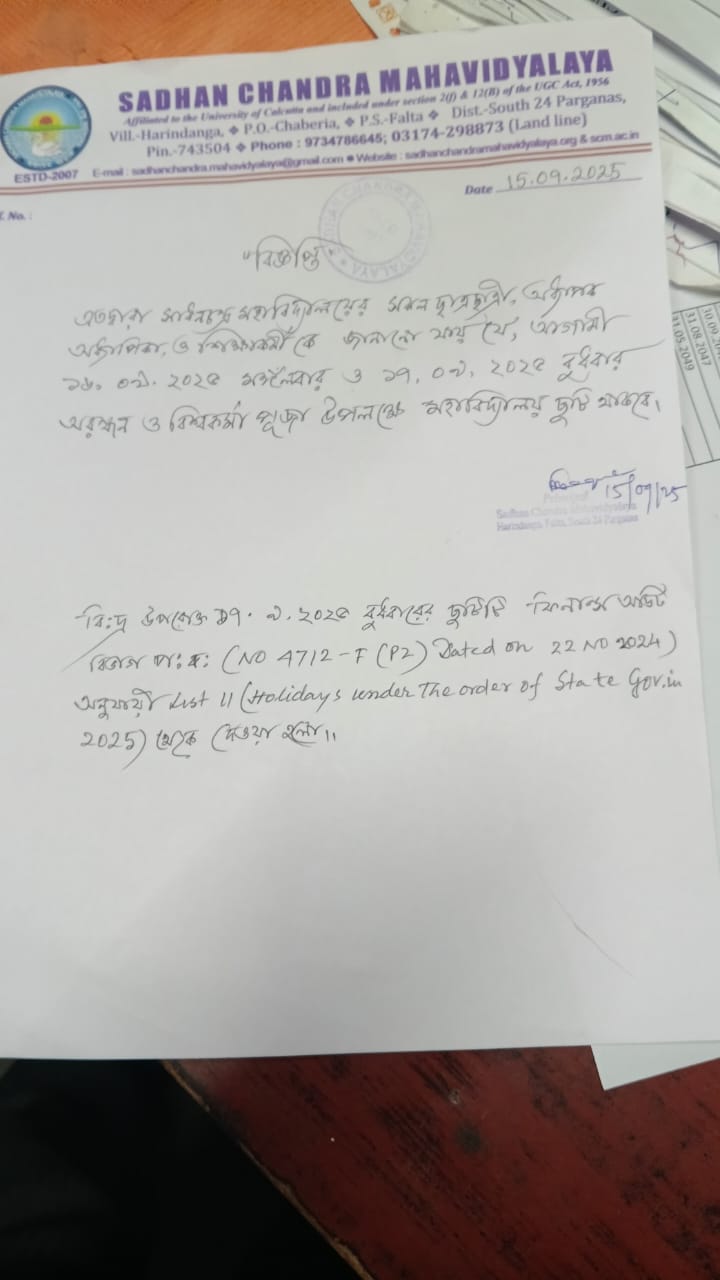 SADHAN CHANDRA MAHAVIDYALAYA
Affiliated to the University of Calcutta and included under section 2(f) & 12(B) of the UGC Act, 1956
Vill.-Harindanga, ❖ P.O.-Chaberia, ❖ P.S.-Falta ❖ Dist.-South 24 Parganas,
Pin.-743504 ❖ Phone : 9734786645; 03174-298873 (Land line)
E-mail : sadhanchandra.mahavidyalaya@gmail.com ● Website : sadhanchandramahavidyalaya.org & scm.ac.in
ESTD-2007
No. :
Date 15.09.2025
"বিজ্ঞপ্তি"
এতদ্বারা সাধনচন্দ্র মহাবিদ্যালয়ের সকল ছাত্রছাত্রী, অধ্যাপক
অধ্যাপিকা, ও শিক্ষাকর্মী কে জানানো যায় যে, আগামী
১৬. ০৯. ২০২৫ মঙ্গলবার ও ১৭. ০৯. ২০২৫ বুধবার
অরন্ধন ও বিশ্বকর্মা পূজা উপলক্ষে মহাবিদ্যালয় ছুটি থাকবে।
15/09/25
Principal
Sadhan Chandra Mahavidyalaya
Harindanga, Falta, South 24 Parganas
বি:দ্র উপরোক্ত ১৭. ৯. ২০২৫ বুধবারের ছুটিটি ফিনান্স অডিট
বিভাগ প:ব: (NO 4712-F (P2) Dated on 22 NO 2024)
অনুযায়ী List II (Holidays under The order of State Gov.in
2025) থেকে দেওয়া হলো।।
30.09
31.08.2047
31.05.2049